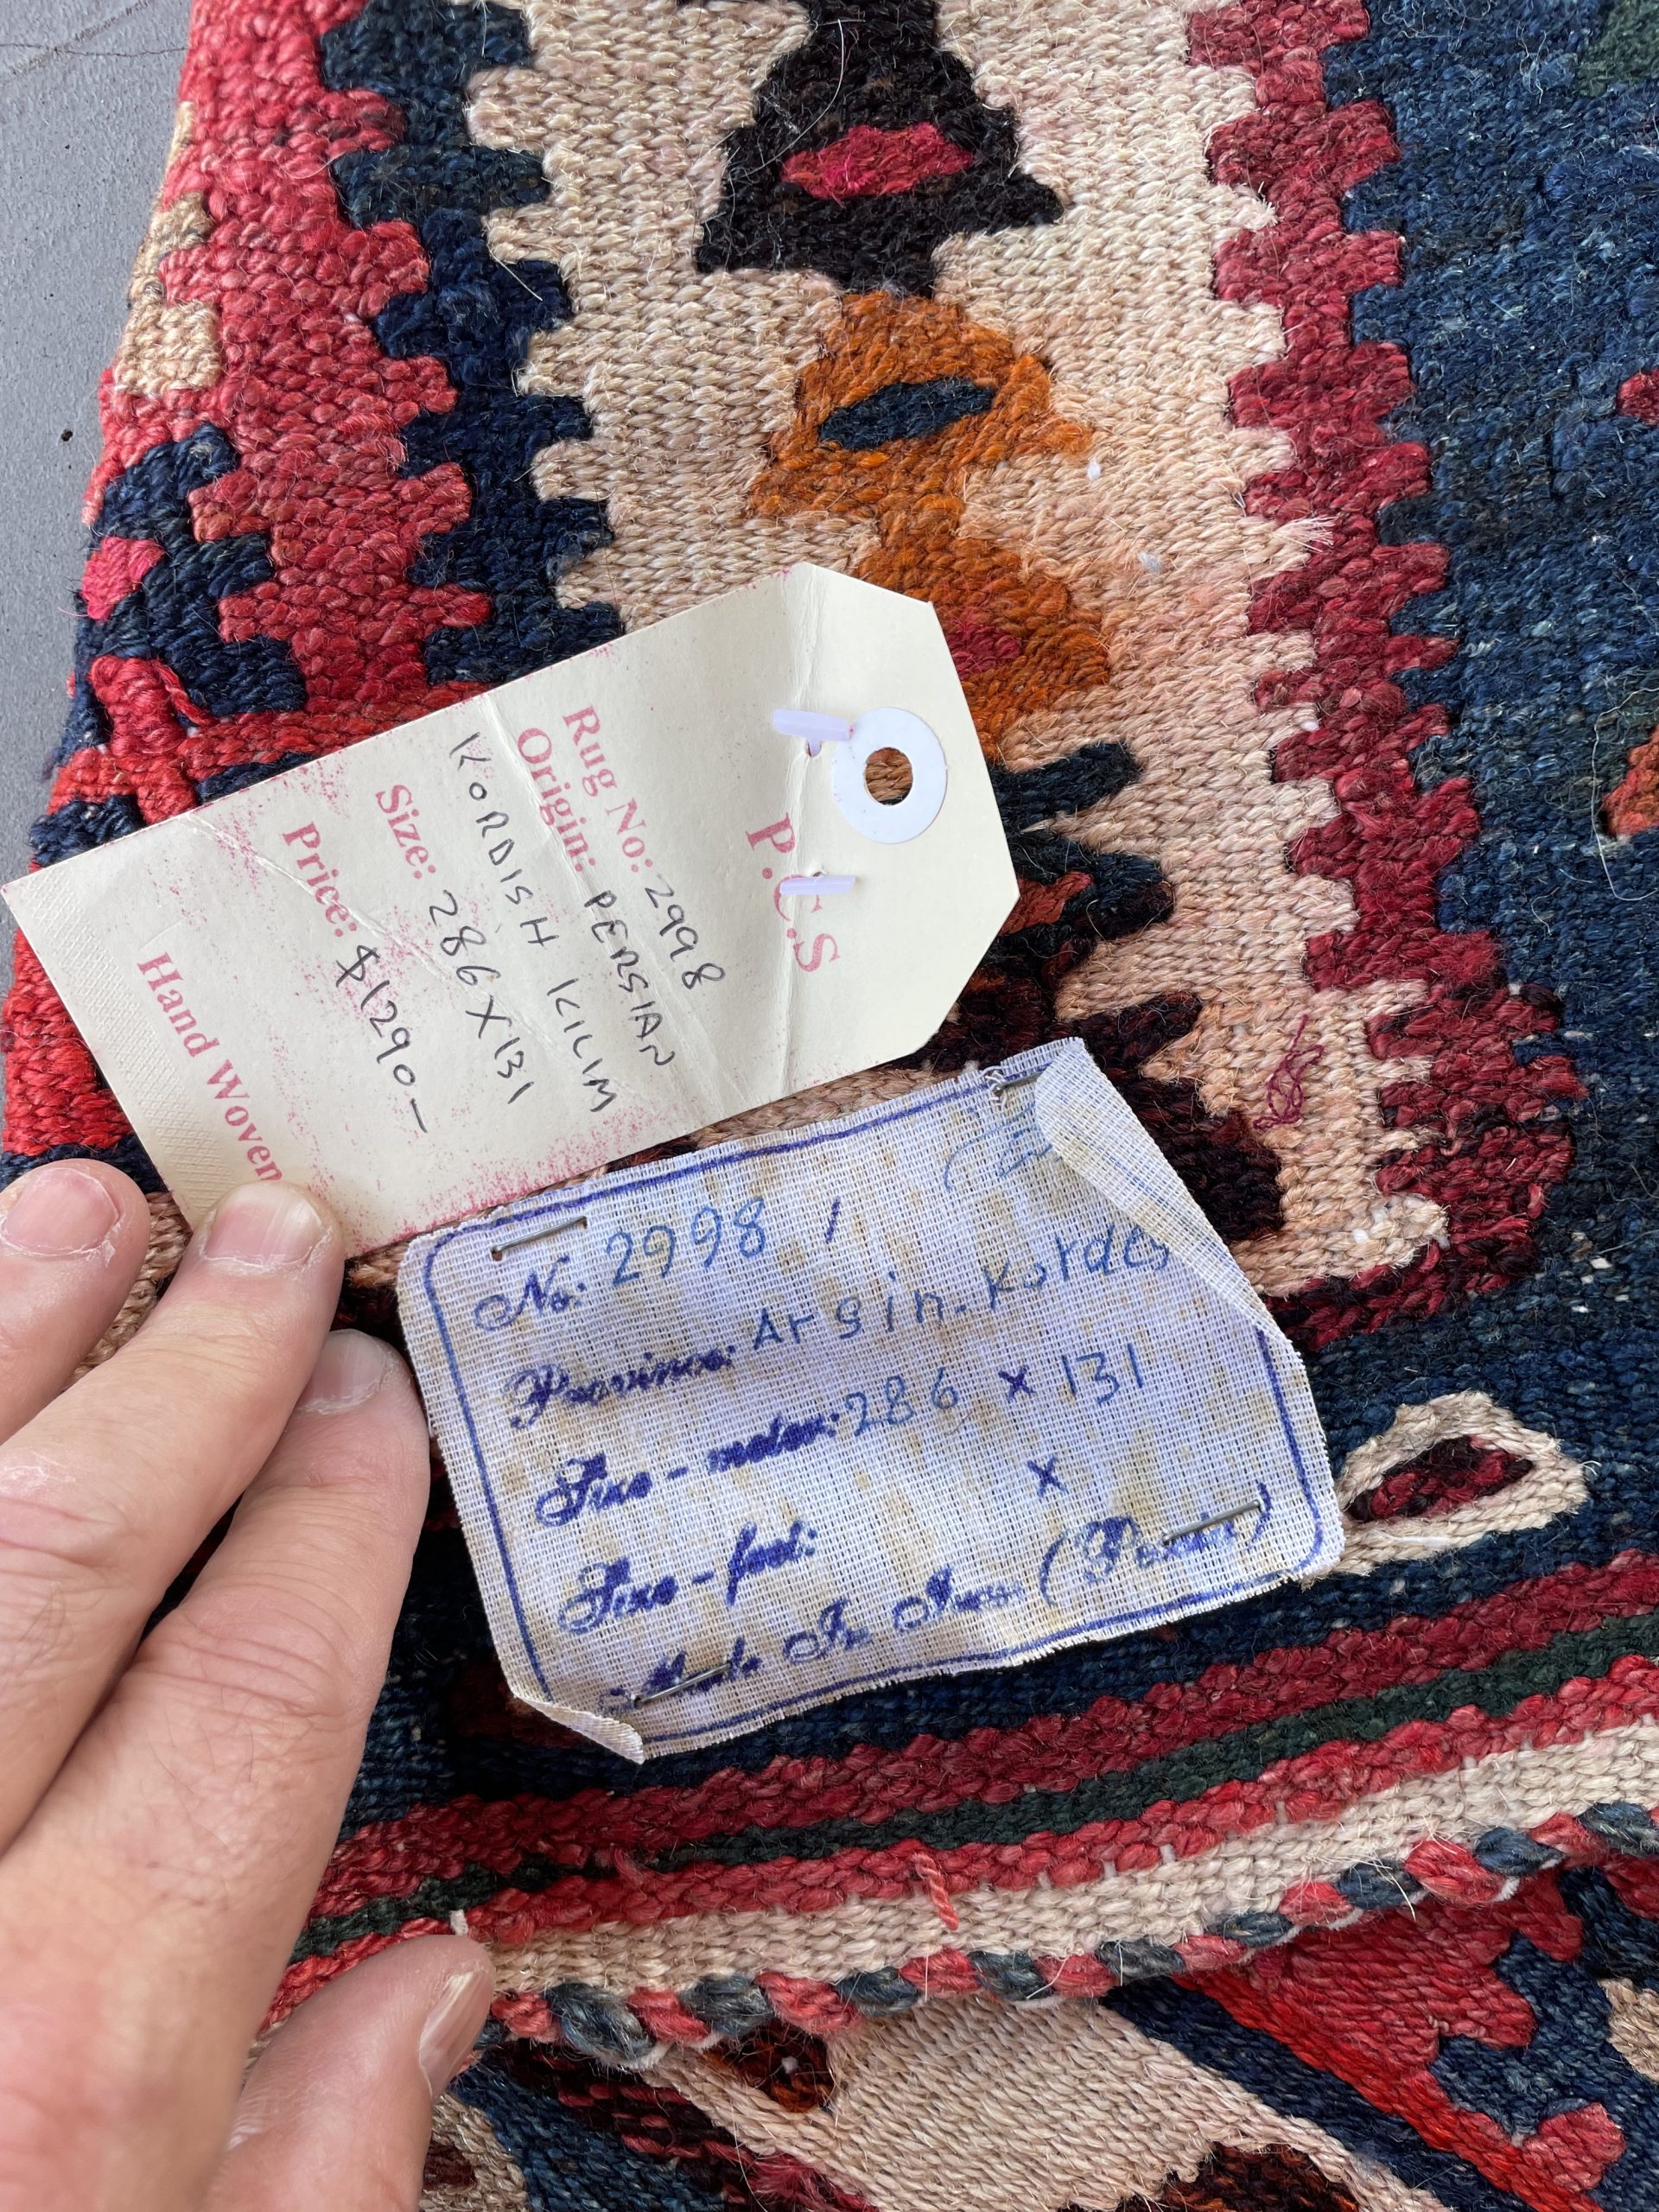 P.C.S
Rug No: 2998
Origin: PERSIAN
KORDISH KILIM
Size: 286 X 131
Price: $1290-
Hand Woven
No: 2998 /
Province: Arsin. Kordes
Size - meter: 286 x 131
Size - feet: x
Made In Iran